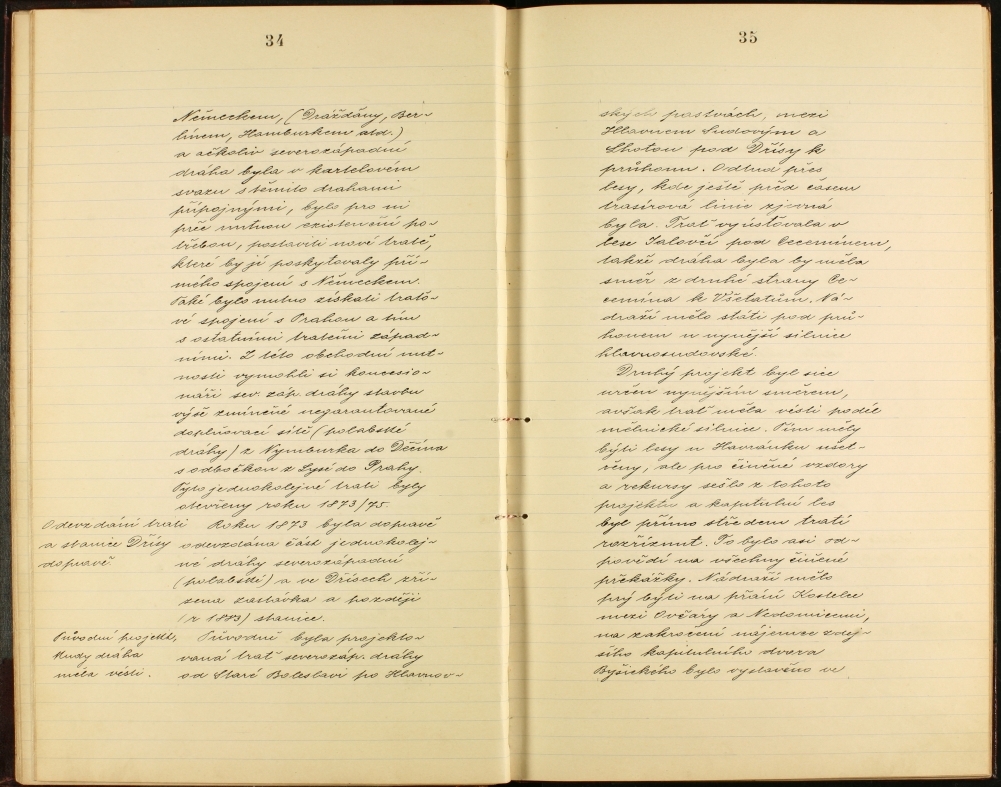 34
Německem, (Drážďány, Ber-
línem, Hamburkem atd.)
a ačkoliv severozápadní
dráha byla v kartelovém
svazu s těmito drahami
přípojnými, bylo pro ni
přec nutnou existenční po-
třebou, postaviti nové tratě,
které by jí poskytovaly pří-
mého spojení s Německem.
Také bylo nutno získati trato-
vé spojení s Prahou a tím
s ostatními tratěmi západ-
ními. Z této obchodní nut-
nosti vymohli si koncesio-
náři sev. záp. dráhy stavbu
výše zmíněné negarantované
doplňovací sítě (polabské
dráhy) z Nymburka do Děčína
s odbočkou z Lysé do Prahy.
Tyto jednokolejné trati byly
otevřeny roku 1873/75.
Odevzdání trati
a stanice Dřísy
dopravě.
Roku 1873 byla dopravě
odevzdána část jednokolej-
né dráhy severozápadní
(polabské) a ve Dřísech zří-
zena zastávka a později
(r 1883) stanice.
Původní projekt,
kudy dráha
měla vésti.
Původně byla projekto-
vaná trať severozáp. dráhy
od Staré Boleslavi po Hlavnov-
35
ských pastvách, mezi
Hlavnem Sudovým a
Lhotou pod Dřísy k
průhonu. Odtud přes
lesy, kde ještě před časem
trasírová linie zjevná
byla. Trať vyúsťovala v
lese Jalovčí pod Cecemínem,
takže dráha byla by měla
směr z druhé strany Ce-
cemína k Všetatům. Ná-
draží mělo státi pod prů-
honem u nynější silnice
hlavnosudovské.
Druhý projekt byl sice
určen nynějším směrem,
avšak trať měla vésti podél
mělnické silnice. Tím měly
býti lesy u Havránku ušet-
řeny, ale pro činěné vzdory
a rekursy sešlo z tohoto
projektu a kapitulní les
byl přímo středem tratí
rozříznut. To bylo asi od-
povědí na všechny činěné
překážky. Nádraží mělo
prý býti na přání Kostelce
mezi Ovčáry a Nedomicemi,
na zakročení nájemce zdej-
šího kapitulního dvora
Byšického bylo vystavěno ve